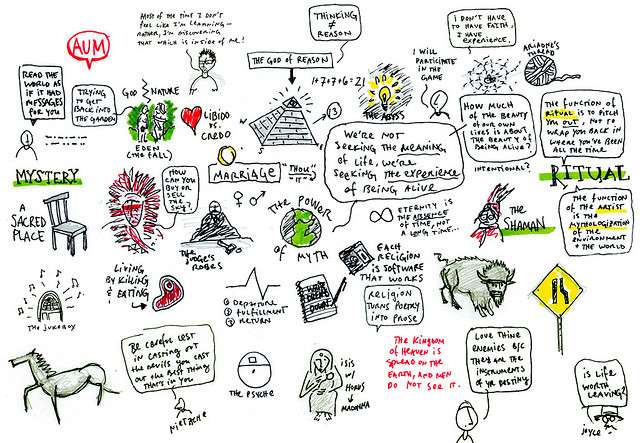 AUM
MOST OF THE TIME I DON'T
FEEL LIKE I'M LEARNING—
RATHER, I'M DISCOVERING
THAT WHICH IS INSIDE OF ME!
THINKING
≠
REASON
THE GOD OF REASON
I DON'T HAVE
TO HAVE FAITH,
I HAVE
EXPERIENCE.
ARIADNE'S
THREAD
READ THE WORLD AS
IF IT HAD
MESSAGES
FOR YOU
TRYING
TO GET
BACK INTO
THE GARDEN
GOD
NATURE
EDEN
(THE FALL)
LIBIDO
VS.
CREDO
1+7+7+6=21
13
THE ABYSS
I WILL
PARTICIPATE
IN THE
GAME
HOW MUCH
OF THE BEAUTY
OF OUR OWN
LIVES IS ABOUT
THE BEAUTY OF
BEING ALIVE?
INTENTIONAL?
THE FUNCTION OF
RITUAL IS TO PITCH
YOU OUT, NOT TO
WRAP YOU BACK IN
WHERE YOU'VE BEEN
ALL THE TIME
WE'RE NOT
SEEKING THE MEANING
OF LIFE, WE'RE
SEEKING THE EXPERIENCE
OF BEING ALIVE
MYSTERY
HOW CAN
YOU BUY
OR SELL
THE SKY?
MARRIAGE
"THOU"
"IT"
RITUAL
A
SACRED
PLACE
THE JUDGE'S
ROBES
THE POWER
OF MYTH
∞ ETERNITY IS
THE ABSENCE
OF TIME, NOT
A LONG TIME...
THE
SHAMAN
THE FUNCTION
OF THE ARTIST
IS THE
MYTHOLOGIZATION
OF THE
ENVIRONMENT
& THE WORLD
THE JUKEBOX
LIVING
BY KILLING
& EATING
① DEPARTURE
② FULFILLMENT
③ RETURN
EACH
RELIGION
IS SOFTWARE
THAT WORKS
RELIGION
TURNS POETRY
INTO PROSE
BE CAREFUL LEST
IN CASTING OUT
THE DEVILS YOU CAST
OUT THE BEST THING
THAT'S IN YOU
NIETZCHE
THE PSYCHE
ISIS
W/
HORUS
→
MADONNA
THE KINGDOM
OF HEAVEN IS
SPREAD ON THE
EARTH, AND MEN
DO NOT SEE IT.
LOVE THINE
ENEMIES B/C
THEY ARE THE
INSTRUMENTS
OF YR DESTINY
IS LIFE
WORTH
LEAVING?
JOYCE